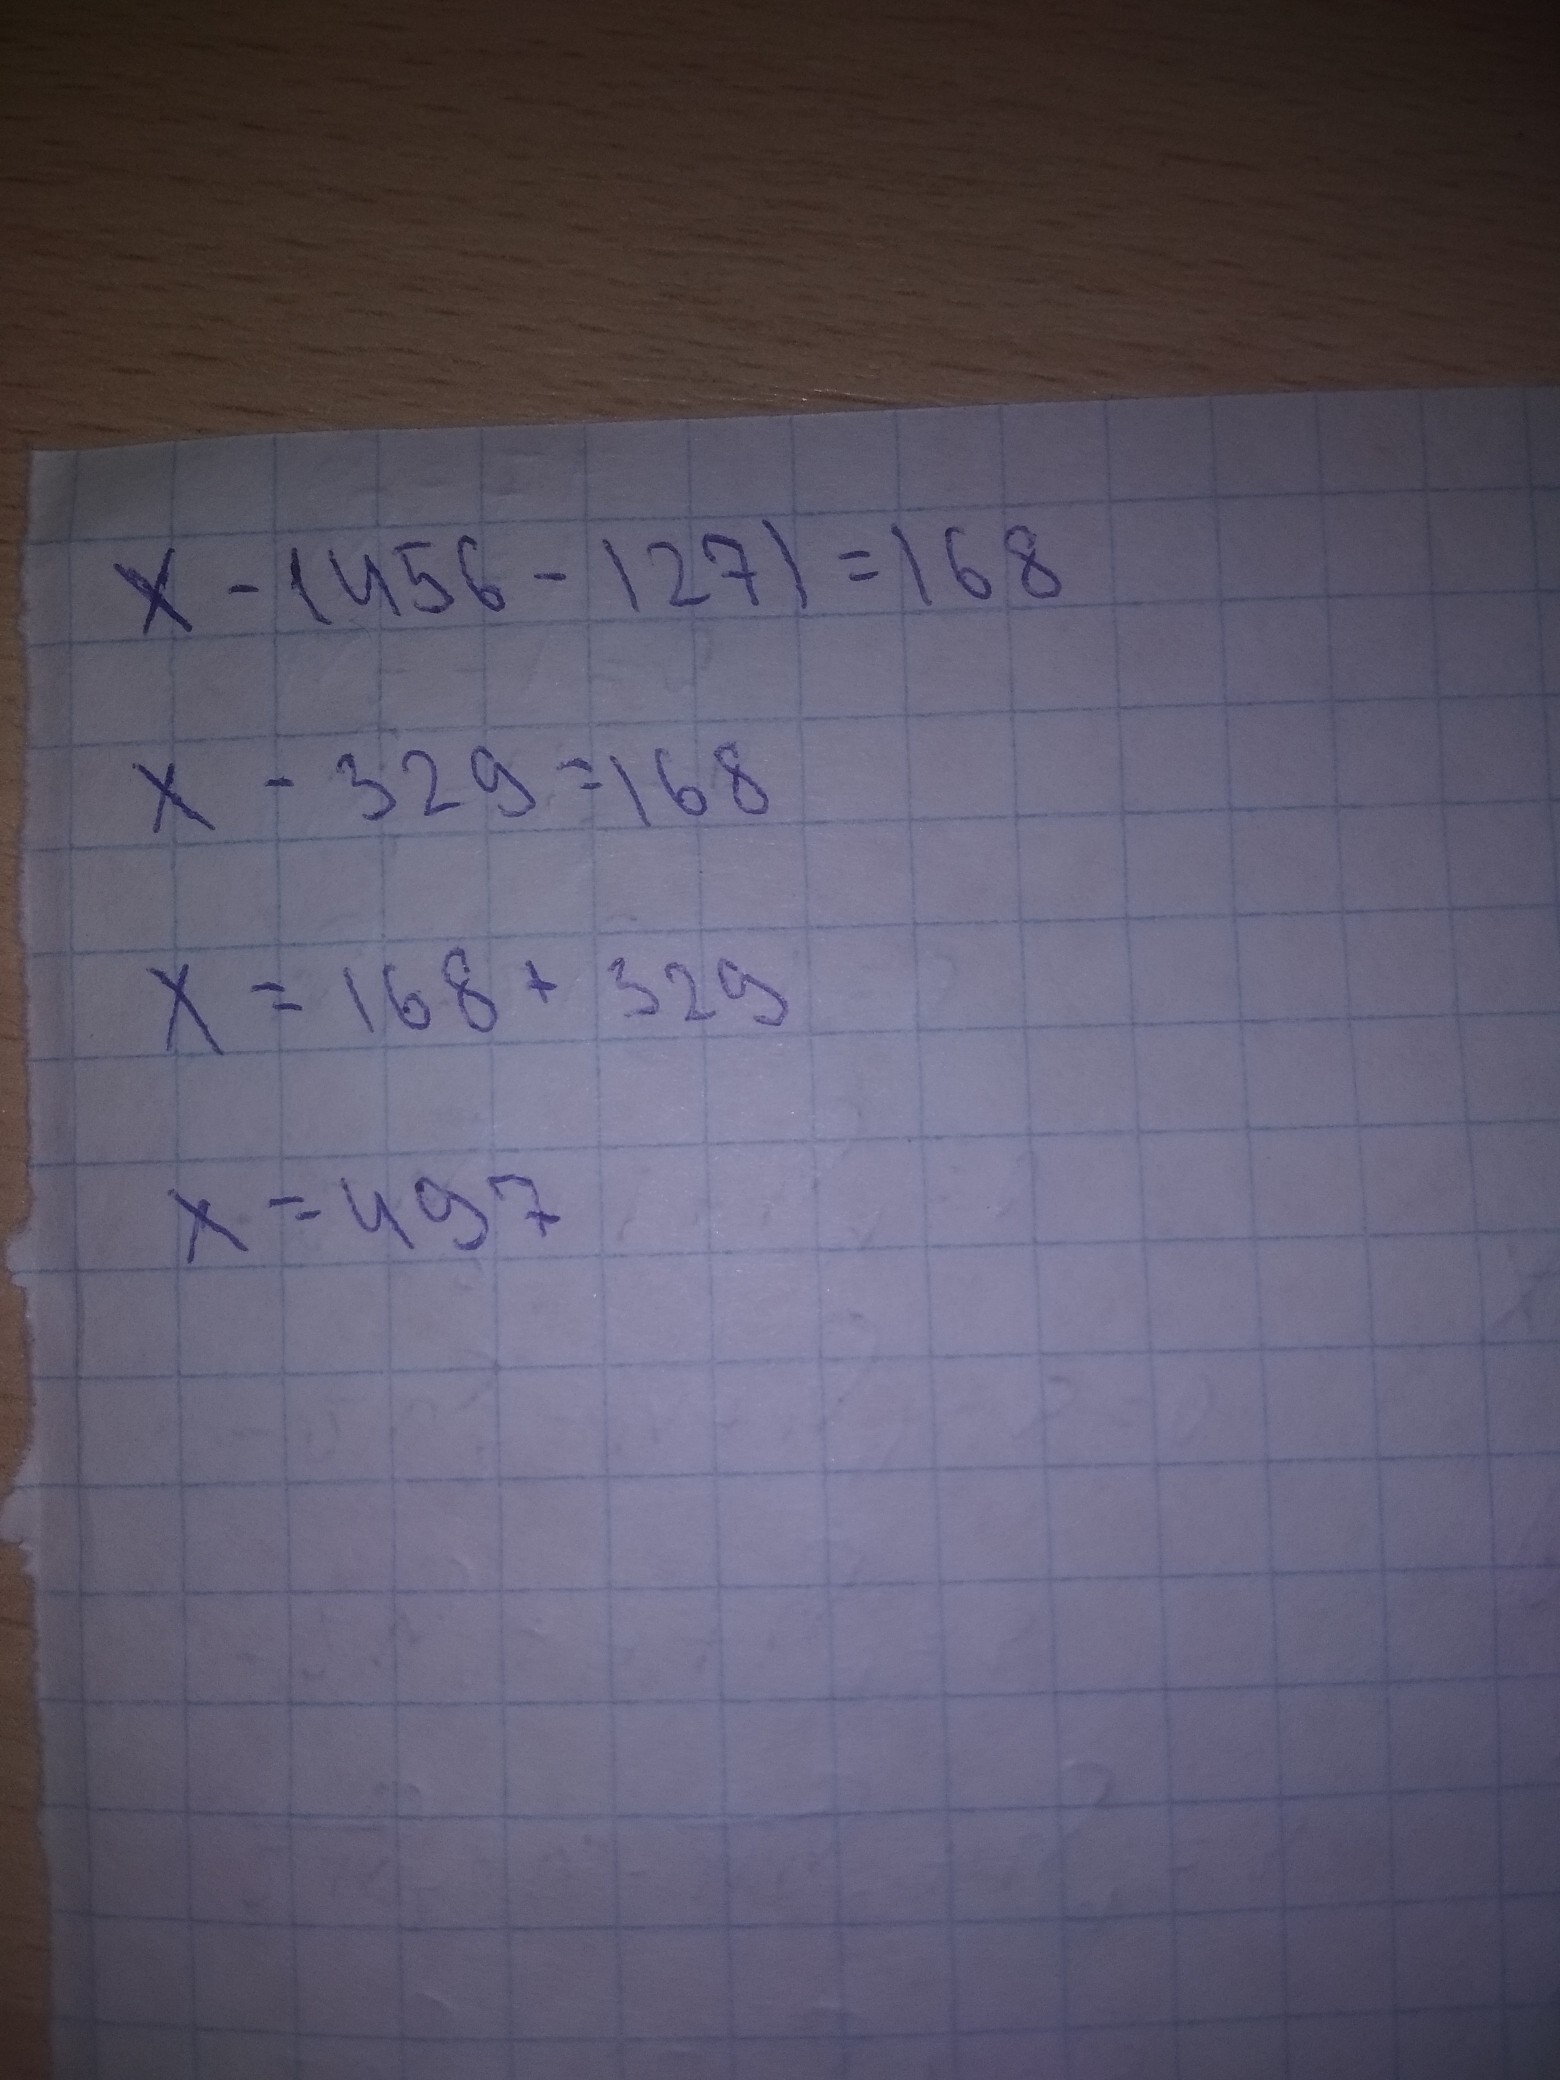 x - (456 - 127) = 168
x - 329 = 168
x = 168 + 329
x = 497